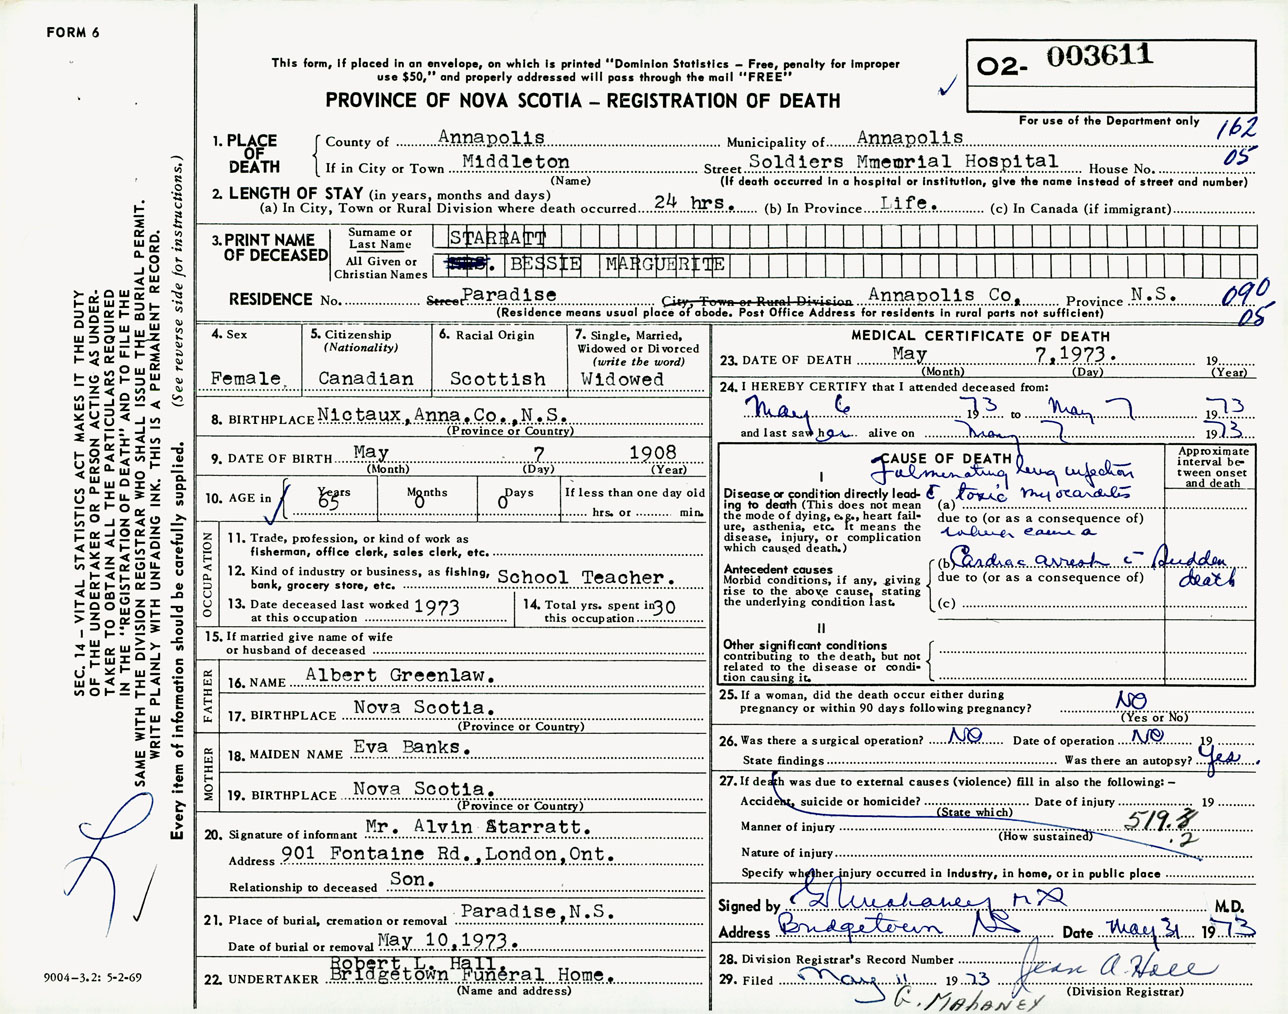 FORM 6
This form, if placed in an envelope, on which is printed "Dominion Statistics – Free, penalty for improper
use $50," and properly addressed will pass through the mail "FREE"
PROVINCE OF NOVA SCOTIA – REGISTRATION OF DEATH
O2- 003611
For use of the Department only
162
05
1. PLACE OF DEATH
County of Annapolis Municipality of Annapolis
If in City or Town Middleton Street Soldiers Mmemrial Hospital House No.
(Name) (If death occurred in a hospital or institution, give the name instead of street and number)
2. LENGTH OF STAY (in years, months and days)
(a) In City, Town or Rural Division where death occurred 24 hrs. (b) In Province Life. (c) In Canada (if immigrant)
3. PRINT NAME OF DECEASED
Surname or Last Name STARRATT
All Given or Christian Names BESSIE MARGUERITE
RESIDENCE No. Street Paradise City, Town or Rural Division Annapolis Co, Province N.S. 090
(Residence means usual place of abode. Post Office Address for residents in rural parts not sufficient) 05
4. Sex Female.
5. Citizenship (Nationality) Canadian
6. Racial Origin Scottish
7. Single, Married, Widowed or Divorced (write the word) Widowed
8. BIRTHPLACE Nictaux,Anna.Co.,N.S.
(Province or Country)
9. DATE OF BIRTH May 7 1908
(Month) (Day) (Year)
10. AGE in Years 65 Months 0 Days 0 If less than one day old
hrs. or min.
OCCUPATION
11. Trade, profession, or kind of work as
fisherman, office clerk, sales clerk, etc.
12. Kind of industry or business, as fishing,
bank, grocery store, etc. School Teacher.
13. Date deceased last worked at this occupation 1973
14. Total yrs. spent in this occupation 30
15. If married give name of wife
or husband of deceased
FATHER
16. NAME Albert Greenlaw.
17. BIRTHPLACE Nova Scotia.
(Province or Country)
MOTHER
18. MAIDEN NAME Eva Banks.
19. BIRTHPLACE Nova Scotia.
(Province or Country)
20. Signature of informant Mr. Alvin Starratt.
Address 901 Fontaine Rd.,London,Ont.
Relationship to deceased Son.
21. Place of burial, cremation or removal Paradise,N.S.
Date of burial or removal May 10,1973.
Robert L. Hall,
22. UNDERTAKER Bridgetown Funeral Home.
(Name and address)
MEDICAL CERTIFICATE OF DEATH
23. DATE OF DEATH May 7,1973. 19
(Month) (Day) (Year)
24. I HEREBY CERTIFY that I attended deceased from:
May 6 1973 to May 7 1973
and last saw her alive on May 7 1973
CAUSE OF DEATH
Approximate interval between onset and death
I
Fulminating lung infection
Disease or condition directly leading to death (This does not mean the mode of dying, e.g., heart failure, asthenia, etc. It means the disease, injury, or complication which caused death.)
(a) c̄ toxic myocarditis
due to (or as a consequence of)
(b) Cardiac arrest c̄ Sudden
death
Antecedent causes
Morbid conditions, if any, giving rise to the above cause, stating the underlying condition last.
due to (or as a consequence of)
(c)
II
Other significant conditions
contributing to the death, but not related to the disease or condition causing it.
25. If a woman, did the death occur either during
pregnancy or within 90 days following pregnancy? NO
(Yes or No)
26. Was there a surgical operation? NO Date of operation NO 19
State findings Was there an autopsy? Yes.
27. If death was due to external causes (violence) fill in also the following: –
Accident, suicide or homicide? Date of injury 19
(State which)
Manner of injury 519.
(How sustained) .2
Nature of injury
Specify whether injury occurred in industry, in home, or in public place
Signed by M.D.
Address Bridgetown NS Date May 31 1973
28. Division Registrar's Record Number
29. Filed May 11 1973 Jean A. Hall
(Division Registrar)
G. MAHANEY
SEC. 14 – VITAL STATISTICS ACT MAKES IT THE DUTY
OF THE UNDERTAKER OR PERSON ACTING AS UNDER-
TAKER TO OBTAIN ALL THE PARTICULARS REQUIRED
IN THE "REGISTRATION OF DEATH" AND TO FILE THE
SAME WITH THE DIVISION REGISTRAR WHO SHALL ISSUE THE BURIAL PERMIT.
WRITE PLAINLY WITH UNFADING INK. THIS IS A PERMANENT RECORD.
Every item of information should be carefully supplied. (See reverse side for instructions.)
9004-3.2: 5-2-69